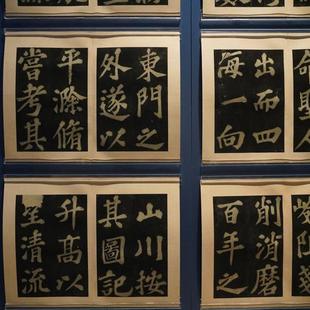 東門之
外遂以
平滁脩
嘗考其
命聖人
出而四
海一向
山川按
其圖記
升高以
望清流
削消磨
百年之